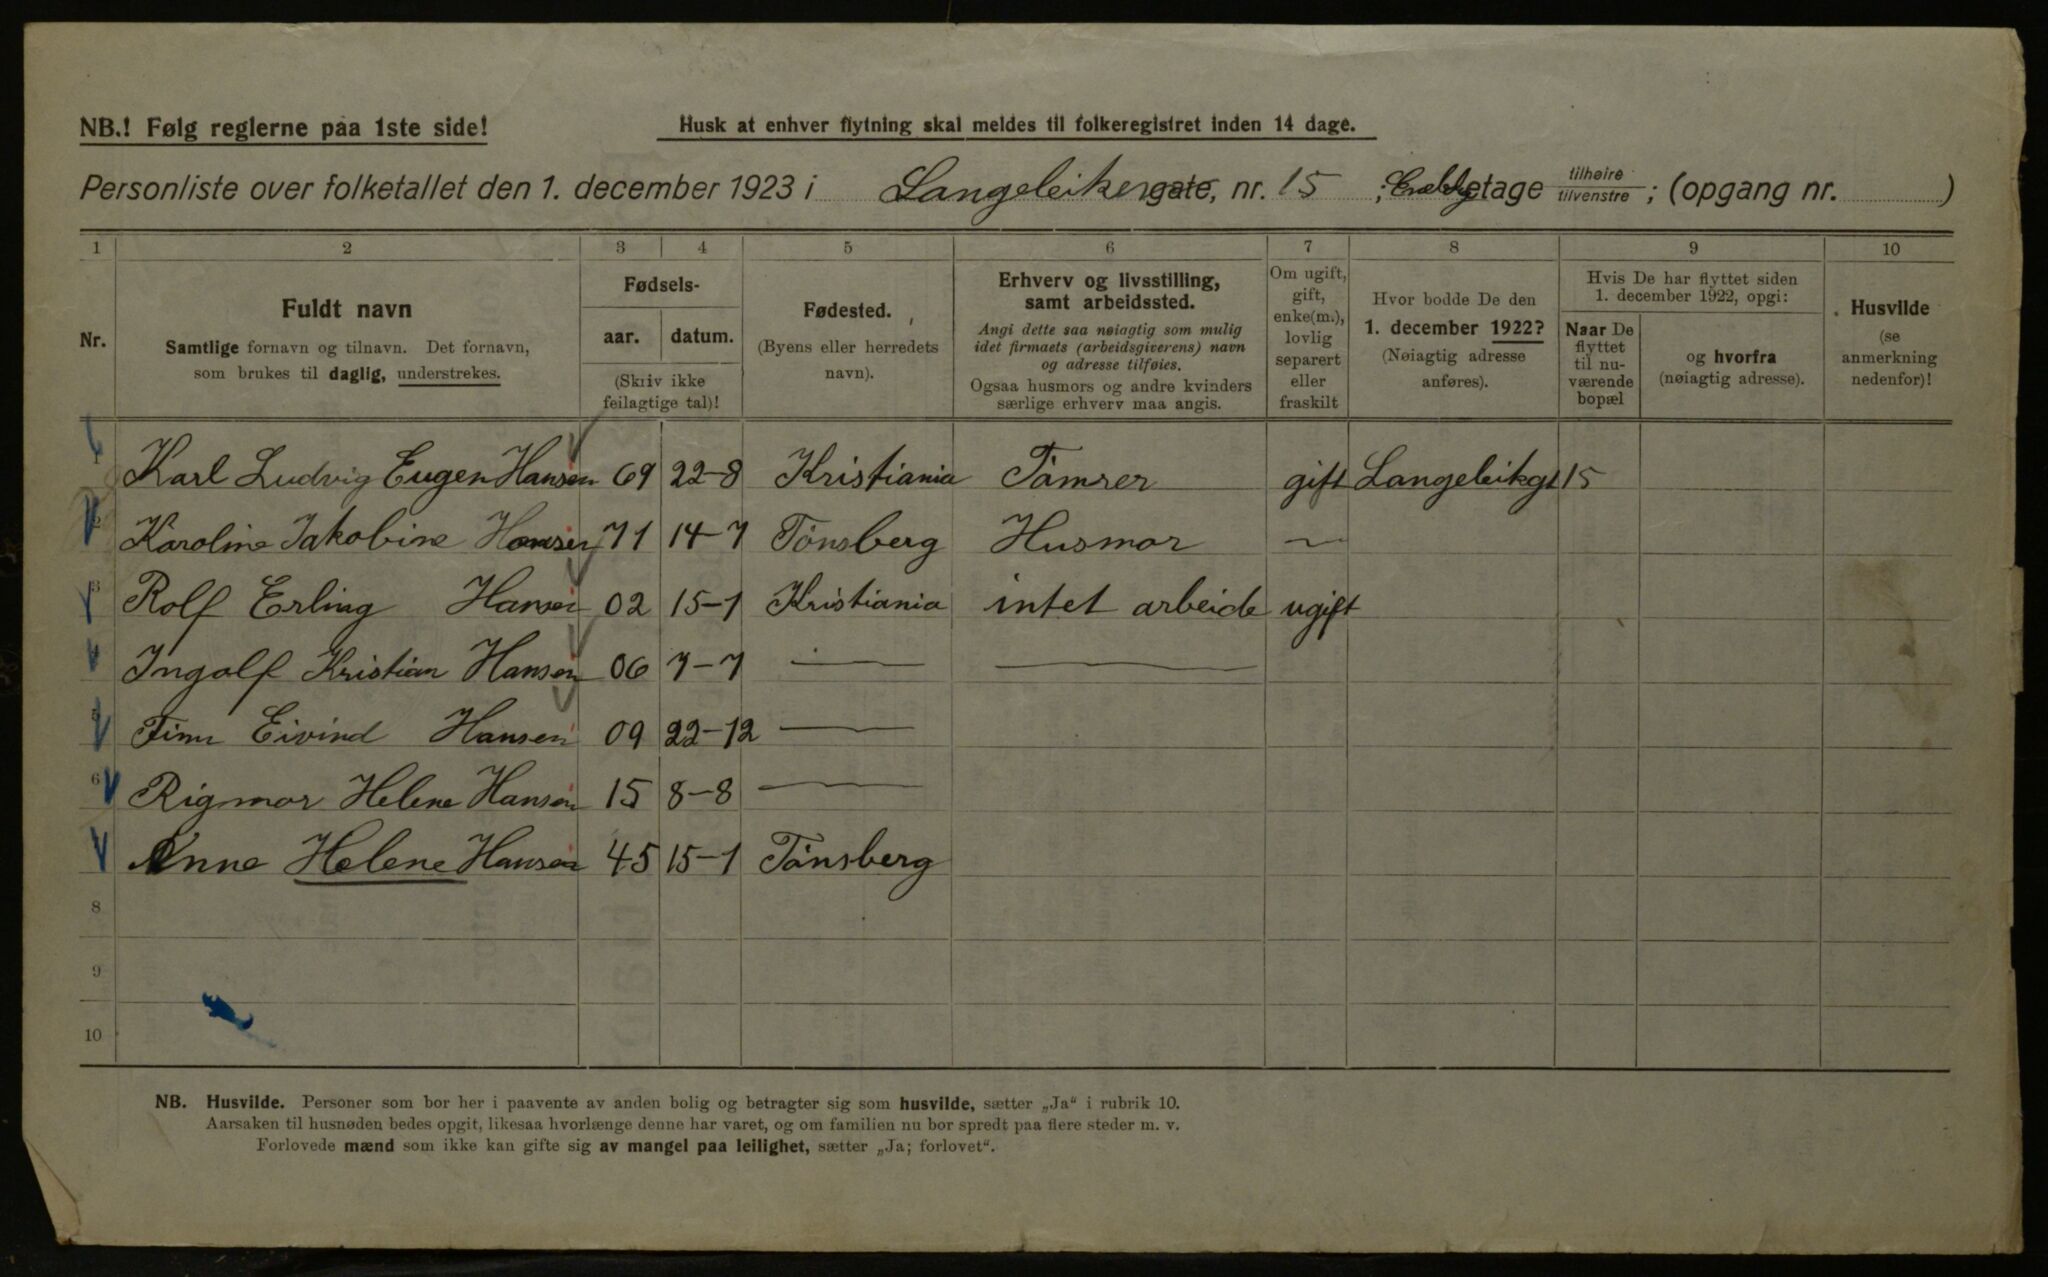 NB.! Følg reglerne paa 1ste side!
Husk at enhver flytning skal meldes til folkeregistret inden 14 dage.
Personliste over folketallet den 1. december 1923 i Langeleiker gate, nr. 15 ; etage tilhøire tilvenstre ; (opgang nr. )
1 2 3 4 5 6 7 8 9 10
Nr.
Fuldt navn
Samtlige fornavn og tilnavn. Det fornavn,
som brukes til daglig, understrekes.
Fødsels-
aar. datum.
(Skriv ikke
feilagtige tal)!
Fødested.
(Byens eller herredets
navn).
Erhverv og livsstilling,
samt arbeidssted.
Angi dette saa nøiagtig som mulig
idet firmaets (arbeidsgiverens) navn
og adresse tilføies.
Ogsaa husmors og andre kvinders
særlige erhverv maa angis.
Om ugift,
gift,
enke(m.),
lovlig
separert
eller
fraskilt
Hvor bodde De den
1. december 1922?
(Nøiagtig adresse
anføres).
Hvis De har flyttet siden
1. december 1922, opgi:
Naar De
flyttet
til nu-
værende
bopæl
og hvorfra
(nøiagtig adresse).
Husvilde
(se
anmerkning
nedenfor)!
1 Karl Ludvig Eugen Hansen 69 22-8 Kristiania Tømrer gift Langeleikgt 15
2 Karoline Jakobine Hansen 71 14-7 Tønsberg Husmor —
3 Rolf Erling Hansen 02 15-1 Kristiania intet arbeide ugift
4 Ingolf Kristian Hansen 06 7-7 — —
5 Finn Eivind Hansen 09 22-12 —
6 Rigmor Helene Hansen 15 8-8 —
Anne Helene Hansen 45 15-1 Tønsberg
8
9
10
NB. Husvilde. Personer som bor her i paavente av anden bolig og betragter sig som husvilde, sætter „Ja" i rubrik 10.
Aarsaken til husnøden bedes opgit, likesaa hvorlænge denne har varet, og om familien nu bor spredt paa flere steder m. v.
Forlovede mænd som ikke kan gifte sig av mangel paa leilighet, sætter „Ja; forlovet".